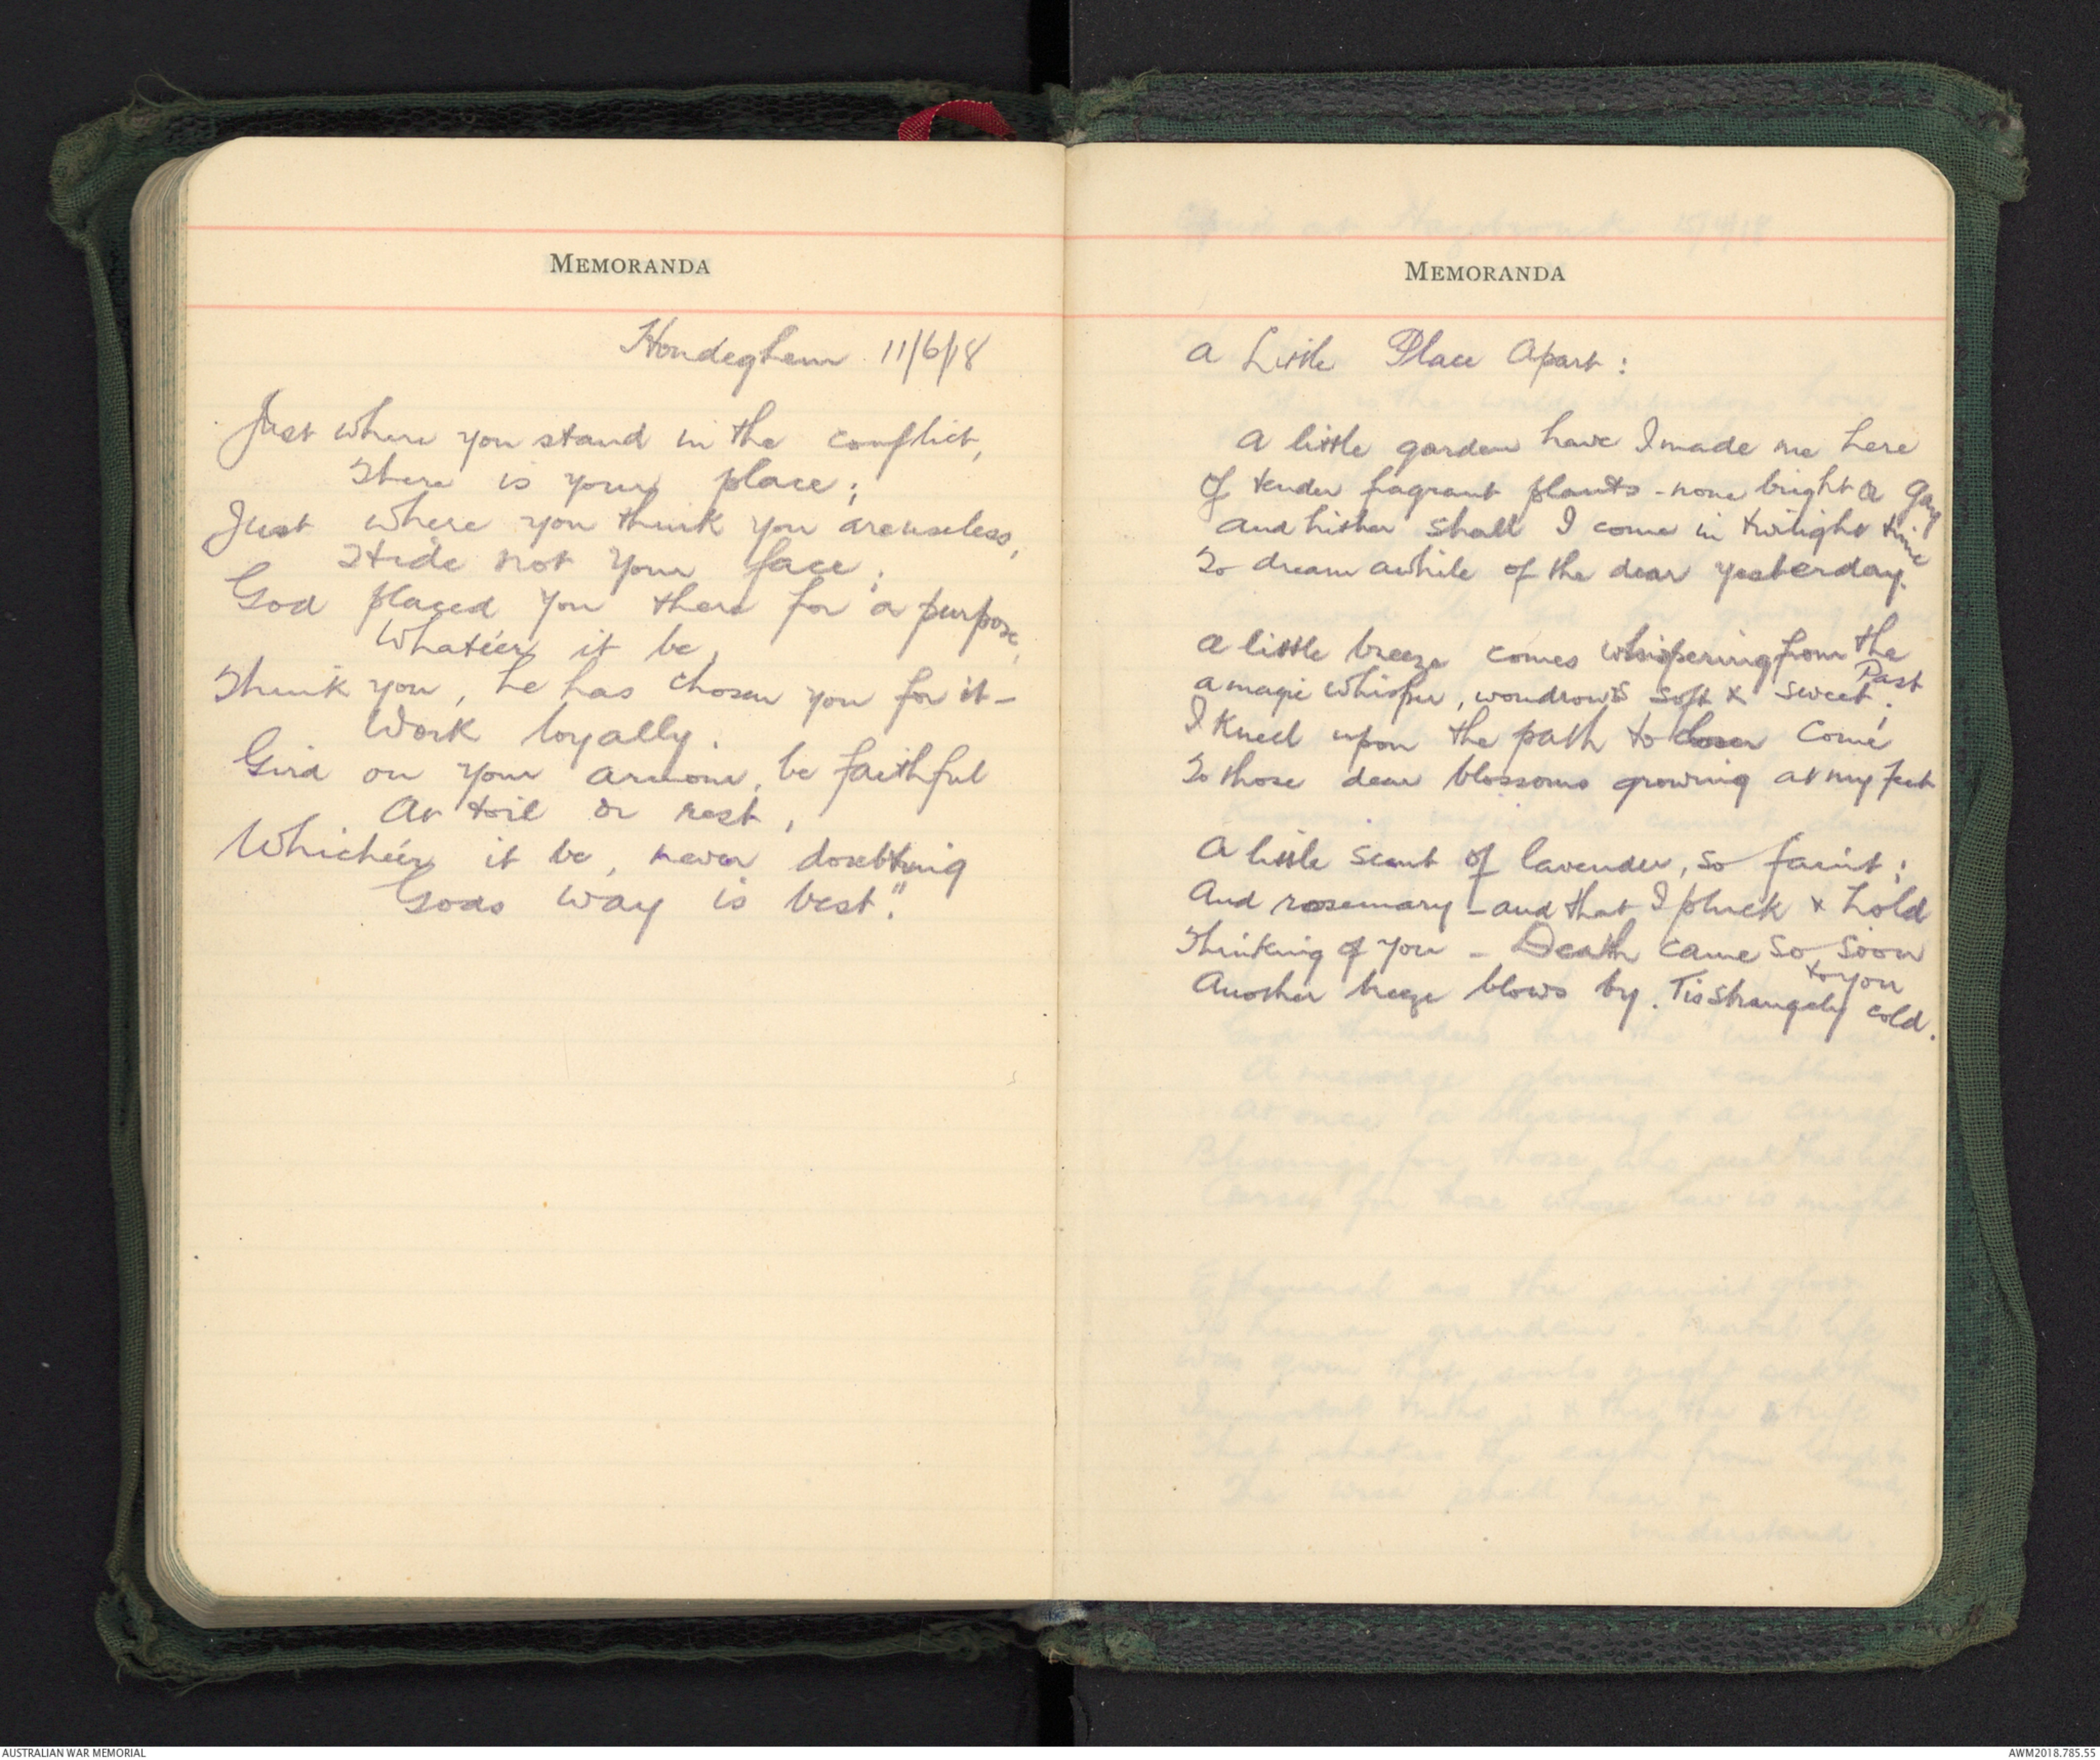 MEMORANDA
Hondeghem 11/6/18
Just where you stand in the conflict,
There is your place;
Just where you think you are useless,
Hide not your face;
God placed you there for a purpose,
Whate'er it be,
Think you, he has chosen you for it -
Work loyally.
Gird on your armour, be faithful
At toil or rest,
Whiche'er it be, never doubting
Gods way is best."
MEMORANDA
A Little Place Apart:
A little garden have I made me here
Of tender fragrant plants - none bright or gay
And hither shall I come in twilight time
To dream awhile of the dear yesterday.
A little breeze comes whispering from the Past
a magic whisper, wondrous soft & sweet;
I kneel upon the path to closer come
To those dear blossoms growing at my feet
A little scent of lavender, so faint;
And rosemary - and that I pluck & hold
Thinking of you - Death came so soon to you
Another breeze blows by. Tis strangely cold.
AUSTRALIAN WAR MEMORIAL
AWM2018.785.55